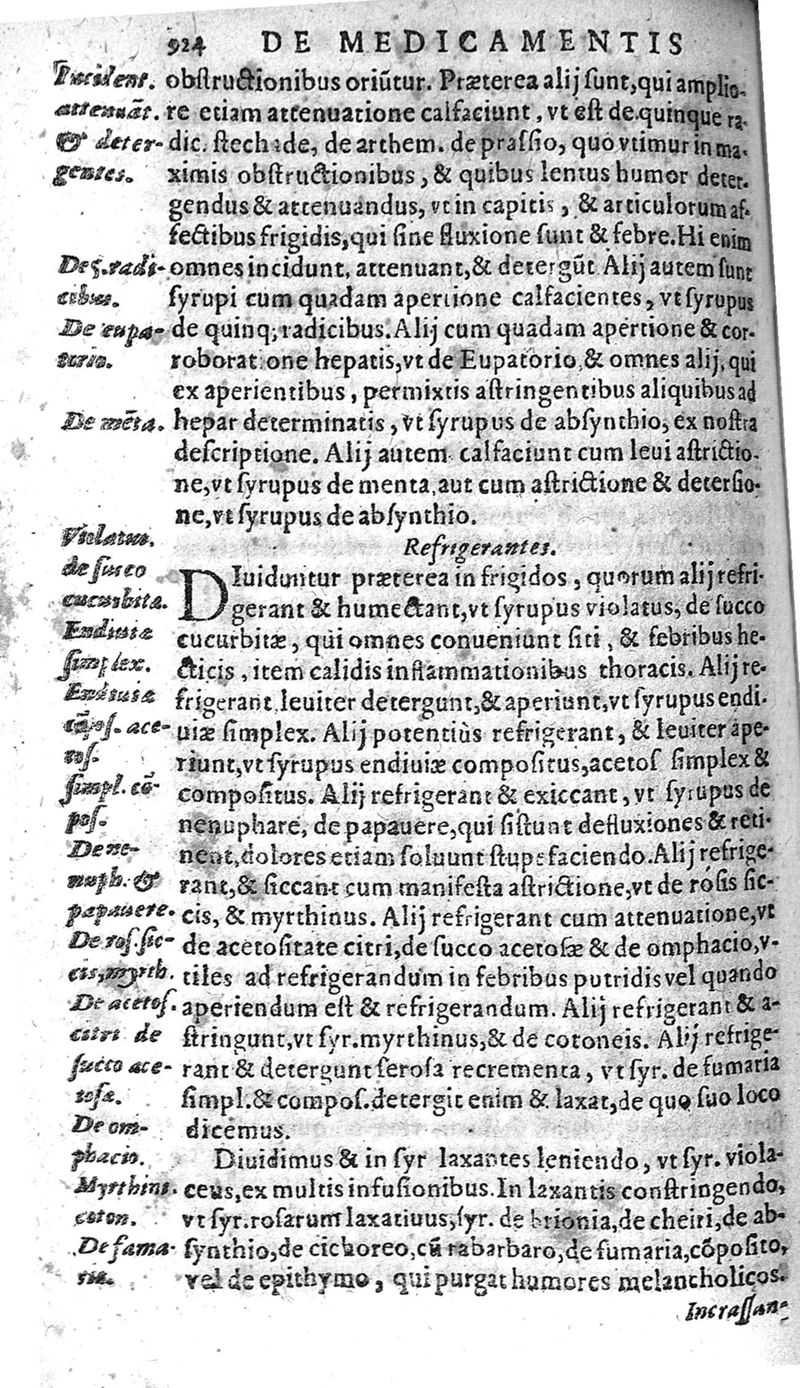 924 DE MEDICAMENTIS
obſtructionibus oriũtur. Præterea alij ſunt, qui amplio-
re etiam attenuatione calfaciunt, vt eſt de quinque ra-
dic. ſtechade, de arthem. de praſſio, quo vtimur in ma-
ximis obſtructionibus, & quibus lentus humor deter-
gendus & attenuandus, vt in capitis, & articulorum af-
fectibus frigidis, qui ſine fluxione ſunt & febre. Hi enim
omnes incidunt, attenuant, & detergũt. Alij autem ſunt
ſyrupi cum quadam apertione calfacientes, vt ſyrupus
de quinq; radicibus. Alij cum quadam apertione & cor-
roboratione hepatis, vt de Eupatorio, & omnes alij, qui
ex aperientibus, permixtis aſtringentibus aliquibus ad
hepar determinatis, vt ſyrupus de abſynthio, ex noſtra
deſcriptione. Alij autem calfaciunt cum leui aſtrictio-
ne, vt ſyrupus de menta, aut cum aſtrictione & deterſio-
ne, vt ſyrupus de abſynthio.
Refrigerantes.
DIuiduntur præterea in frigidos, quorum alij refri-
gerant & humectant, vt ſyrupus violatus, de ſucco
cucurbitæ, qui omnes conueniunt ſiti, & febribus he-
cticis, item calidis inflammationibus thoracis. Alij re-
frigerant leuiter detergunt, & aperiunt, vt ſyrupus endi-
uiæ ſimplex. Alij potentiùs refrigerant, & leuiter ape-
riunt, vt ſyrupus endiuiæ compoſitus, acetoſ ſimplex &
compoſitus. Alij refrigerant & exiccant, vt ſyrupus de
nenuphare, de papauere, qui ſiſtunt defluxiones & reti-
nent, dolores etiam ſoluunt ſtupefaciendo. Alij refrige-
rant, & ſiccant cum manifeſta aſtrictione, vt de roſis ſic-
cis, & myrthinus. Alij refrigerant cum attenuatione, vt
de acetoſitate citri, de ſucco acetoſæ & de omphacio, v-
tiles ad refrigerandum in febribus putridis vel quando
aperiendum eſt & refrigerandum. Alij refrigerant & a-
ſtringunt, vt ſyr. myrthinus, & de cotoneis. Alij refrige-
rant & detergunt ſeroſa recrementa, vt ſyr. de fumaria
ſimpl. & compoſ. detergit enim & laxat, de quo ſuo loco
dicemus.
Diuidimus & in ſyr laxantes leniendo, vt ſyr. viola-
ceus, ex multis infuſionibus. In laxantis conſtringendo,
vt ſyr. roſarum laxatiuus, ſyr. de brionia, de cheiri, de ab-
ſynthio, de cichoreo, cũ rabarbaro, de fumaria, cõpoſito,
vel de epithymo, qui purgat humores melancholicos.
Incraſſan-
Incident.
attenuãt.
& deter-
gentes.
De 5. radi-
cibus.
De eupa-
torio.
De mẽta.
Violatus.
de ſucco
cucurbita.
Endiuiæ
ſimplex.
Endiuiæ
cõpoſ. ace-
toſ.
ſimpl. cõ-
poſ.
De ne-
nuph. &
papauere.
De roſ. ſic-
cis, myrth.
De acetoſ.
citri de
ſucco ace-
toſæ.
De om-
phacio.
Myrthinꝰ.
coton.
De fuma-
ria.